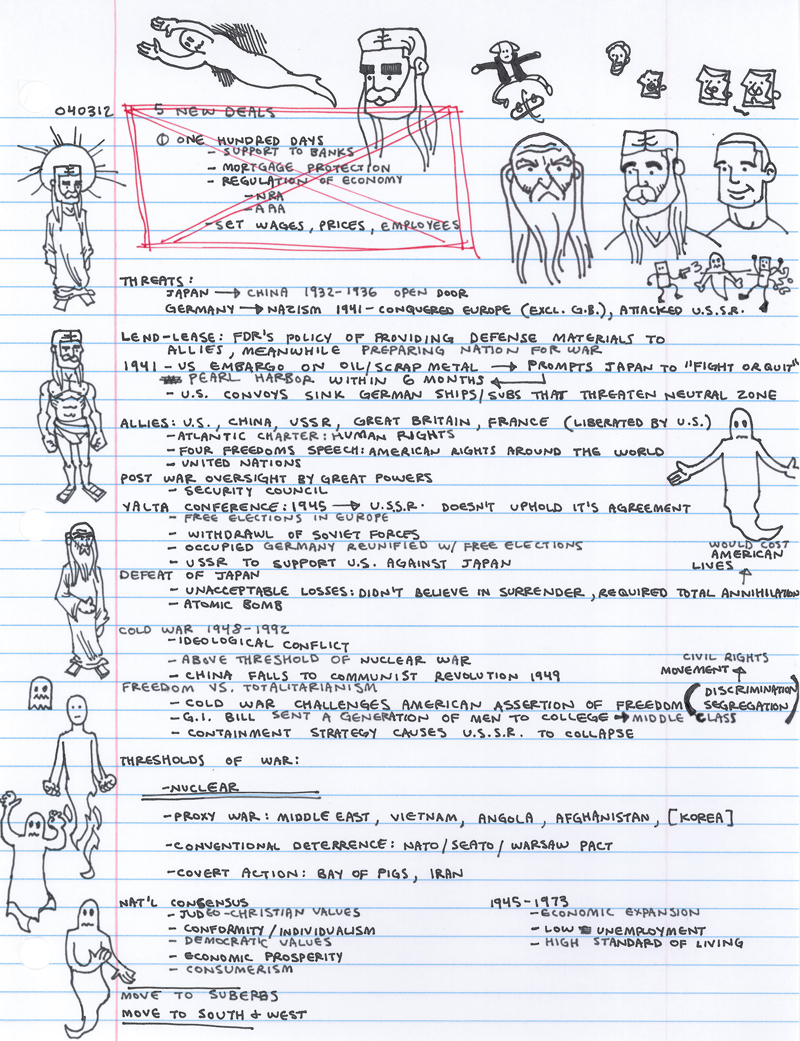 040312
5 NEW DEALS
① ONE HUNDRED DAYS
- SUPPORT TO BANKS
- MORTGAGE PROTECTION
- REGULATION OF ECONOMY
- NRA
- AAA
- SET WAGES, PRICES, EMPLOYEES
THREATS:
JAPAN → CHINA 1932-1936 OPEN DOOR
GERMANY → NAZISM 1941- CONQUERED EUROPE (EXCL. G.B.), ATTACKED U.S.S.R.
LEND-LEASE: FDR'S POLICY OF PROVIDING DEFENSE MATERIALS TO
ALLIES, MEANWHILE PREPARING NATION FOR WAR
1941 - US EMBARGO ON OIL/SCRAP METAL → PROMPTS JAPAN TO "FIGHT OR QUIT"
PEARL HARBOR WITHIN 6 MONTHS ←
- U.S. CONVOYS SINK GERMAN SHIPS/SUBS THAT THREATEN NEUTRAL ZONE
ALLIES: U.S., CHINA, USSR, GREAT BRITAIN, FRANCE (LIBERATED BY U.S.)
- ATLANTIC CHARTER: HUMAN RIGHTS
- FOUR FREEDOMS SPEECH: AMERICAN RIGHTS AROUND THE WORLD
- UNITED NATIONS
POST WAR OVERSIGHT BY GREAT POWERS
- SECURITY COUNCIL
YALTA CONFERENCE: 1945 → U.S.S.R. DOESN'T UPHOLD IT'S AGREEMENT
- FREE ELECTIONS IN EUROPE
- WITHDRAWL OF SOVIET FORCES
- OCCUPIED GERMANY REUNIFIED W/ FREE ELECTIONS
- USSR TO SUPPORT U.S. AGAINST JAPAN
WOULD COST
AMERICAN
LIVES
DEFEAT OF JAPAN
- UNACCEPTABLE LOSSES: DIDN'T BELIEVE IN SURRENDER, REQUIRED TOTAL ANNIHILATION
- ATOMIC BOMB
COLD WAR 1948-1992
- IDEOLOGICAL CONFLICT
- ABOVE THRESHOLD OF NUCLEAR WAR
- CHINA FALLS TO COMMUNIST REVOLUTION 1949
CIVIL RIGHTS
MOVEMENT
FREEDOM VS. TOTALITARIANISM
- COLD WAR CHALLENGES AMERICAN ASSERTION OF FREEDOM (DISCRIMINATION
SEGREGATION)
- G.I. BILL SENT A GENERATION OF MEN TO COLLEGE → MIDDLE CLASS
- CONTAINMENT STRATEGY CAUSES U.S.S.R. TO COLLAPSE
THRESHOLDS OF WAR:
- NUCLEAR
- PROXY WAR: MIDDLE EAST, VIETNAM, ANGOLA, AFGHANISTAN, [KOREA]
- CONVENTIONAL DETERRENCE: NATO/SEATO/WARSAW PACT
- COVERT ACTION: BAY OF PIGS, IRAN
NAT'L CONSENSUS
- JUDEO-CHRISTIAN VALUES
- CONFORMITY/INDIVIDUALISM
- DEMOCRATIC VALUES
- ECONOMIC PROSPERITY
- CONSUMERISM
1945-1973
- ECONOMIC EXPANSION
- LOW UNEMPLOYMENT
- HIGH STANDARD OF LIVING
MOVE TO SUBERBS
MOVE TO SOUTH & WEST